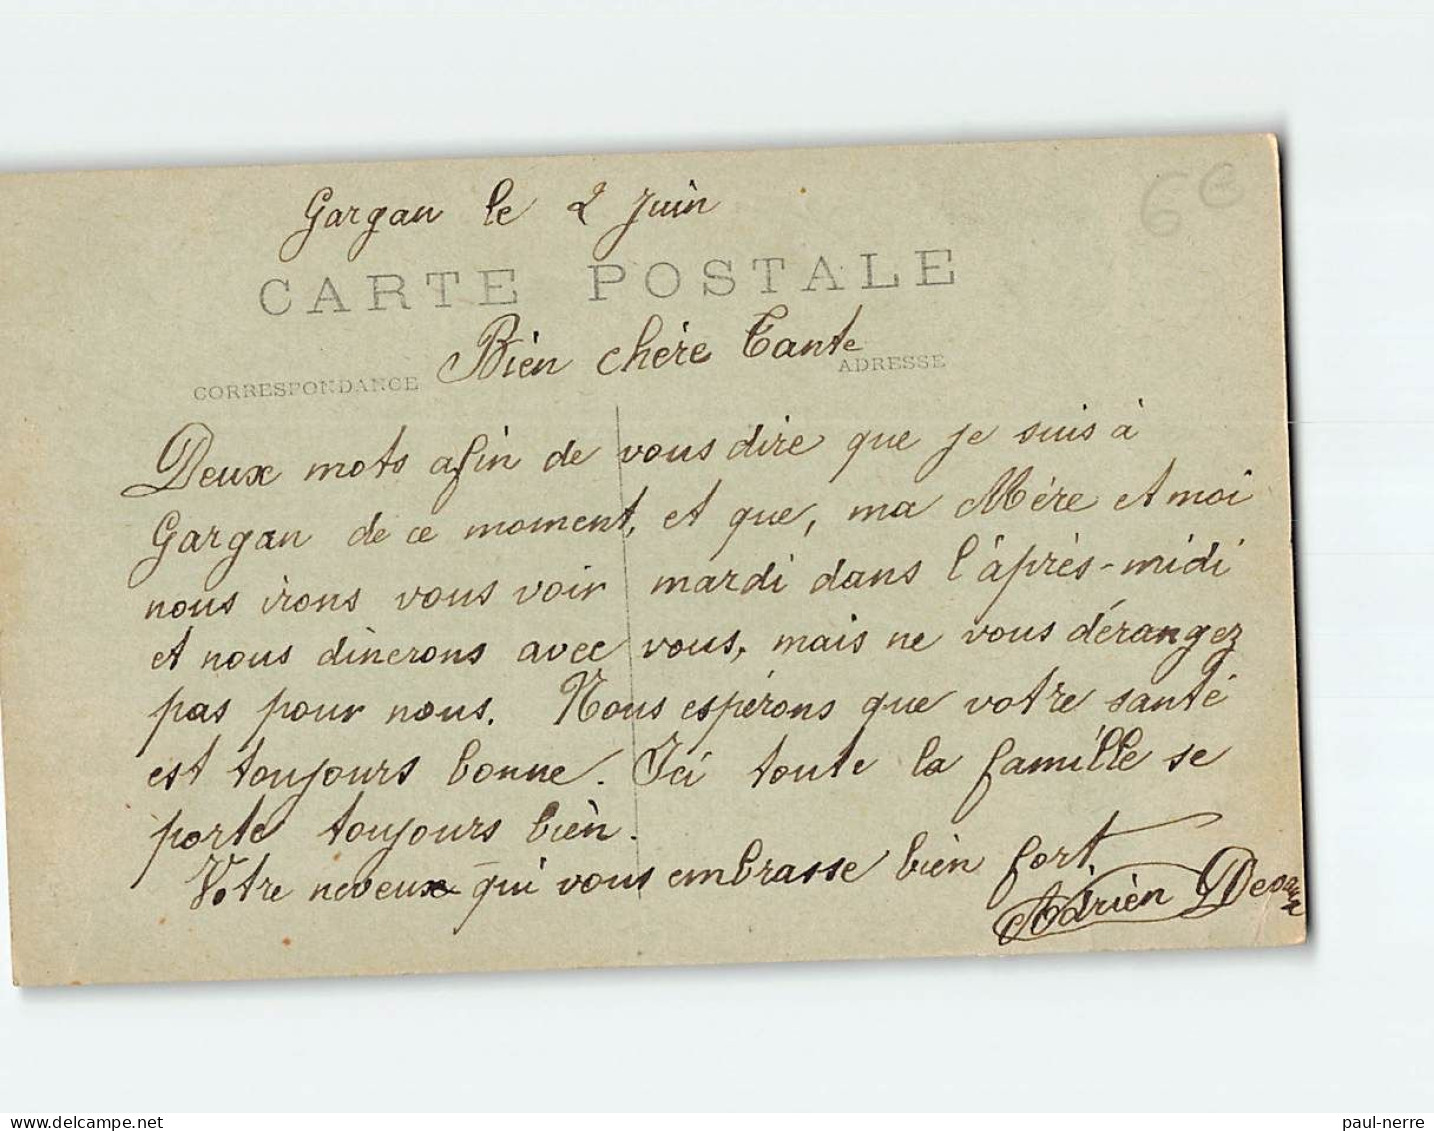 6€
Gargan le 2 Juin
CARTE POSTALE
Bien chère Tante
CORRESPONDANCE
ADRESSE
Deux mots afin de vous dire que je suis à
Gargan de ce moment, et que, ma Mère et moi
nous irons vous voir mardi dans l'après-midi
et nous dinerons avec vous, mais ne vous dérangez
pas pour nous. Nous espérons que votre santé
est toujours bonne. Ici toute la famille se
porte toujours bien.
Votre neveux qui vous embrasse bien fort.
Adrien
delcampe.net
paul-nerre